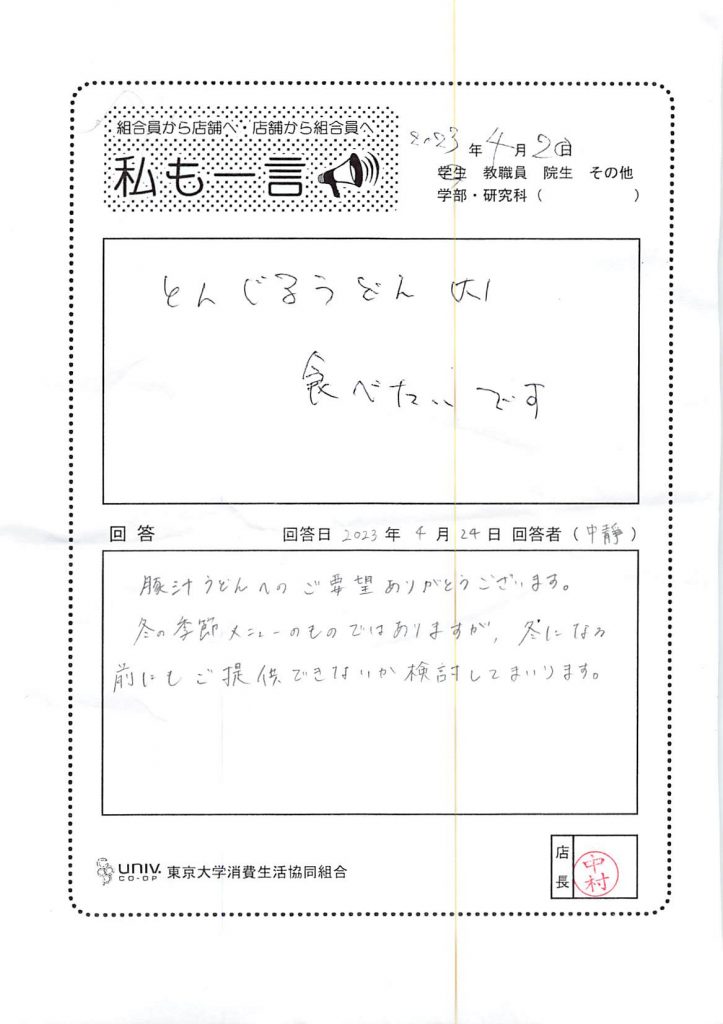 組合員から店舗へ・店舗から組合員へ
私も一言
2023年4月2日
学生 教職員 院生 その他
学部・研究科( )
とんじるうどん 大
食べたいです
回答 回答日 2023年 4月 24日 回答者(中静)
豚汁うどんへのご要望ありがとうございます。
冬の季節メニューのものではありますが、冬になる
前にもご提供できないか検討してまいります。
UNIV. CO-OP 東京大学消費生活協同組合
店長
中村